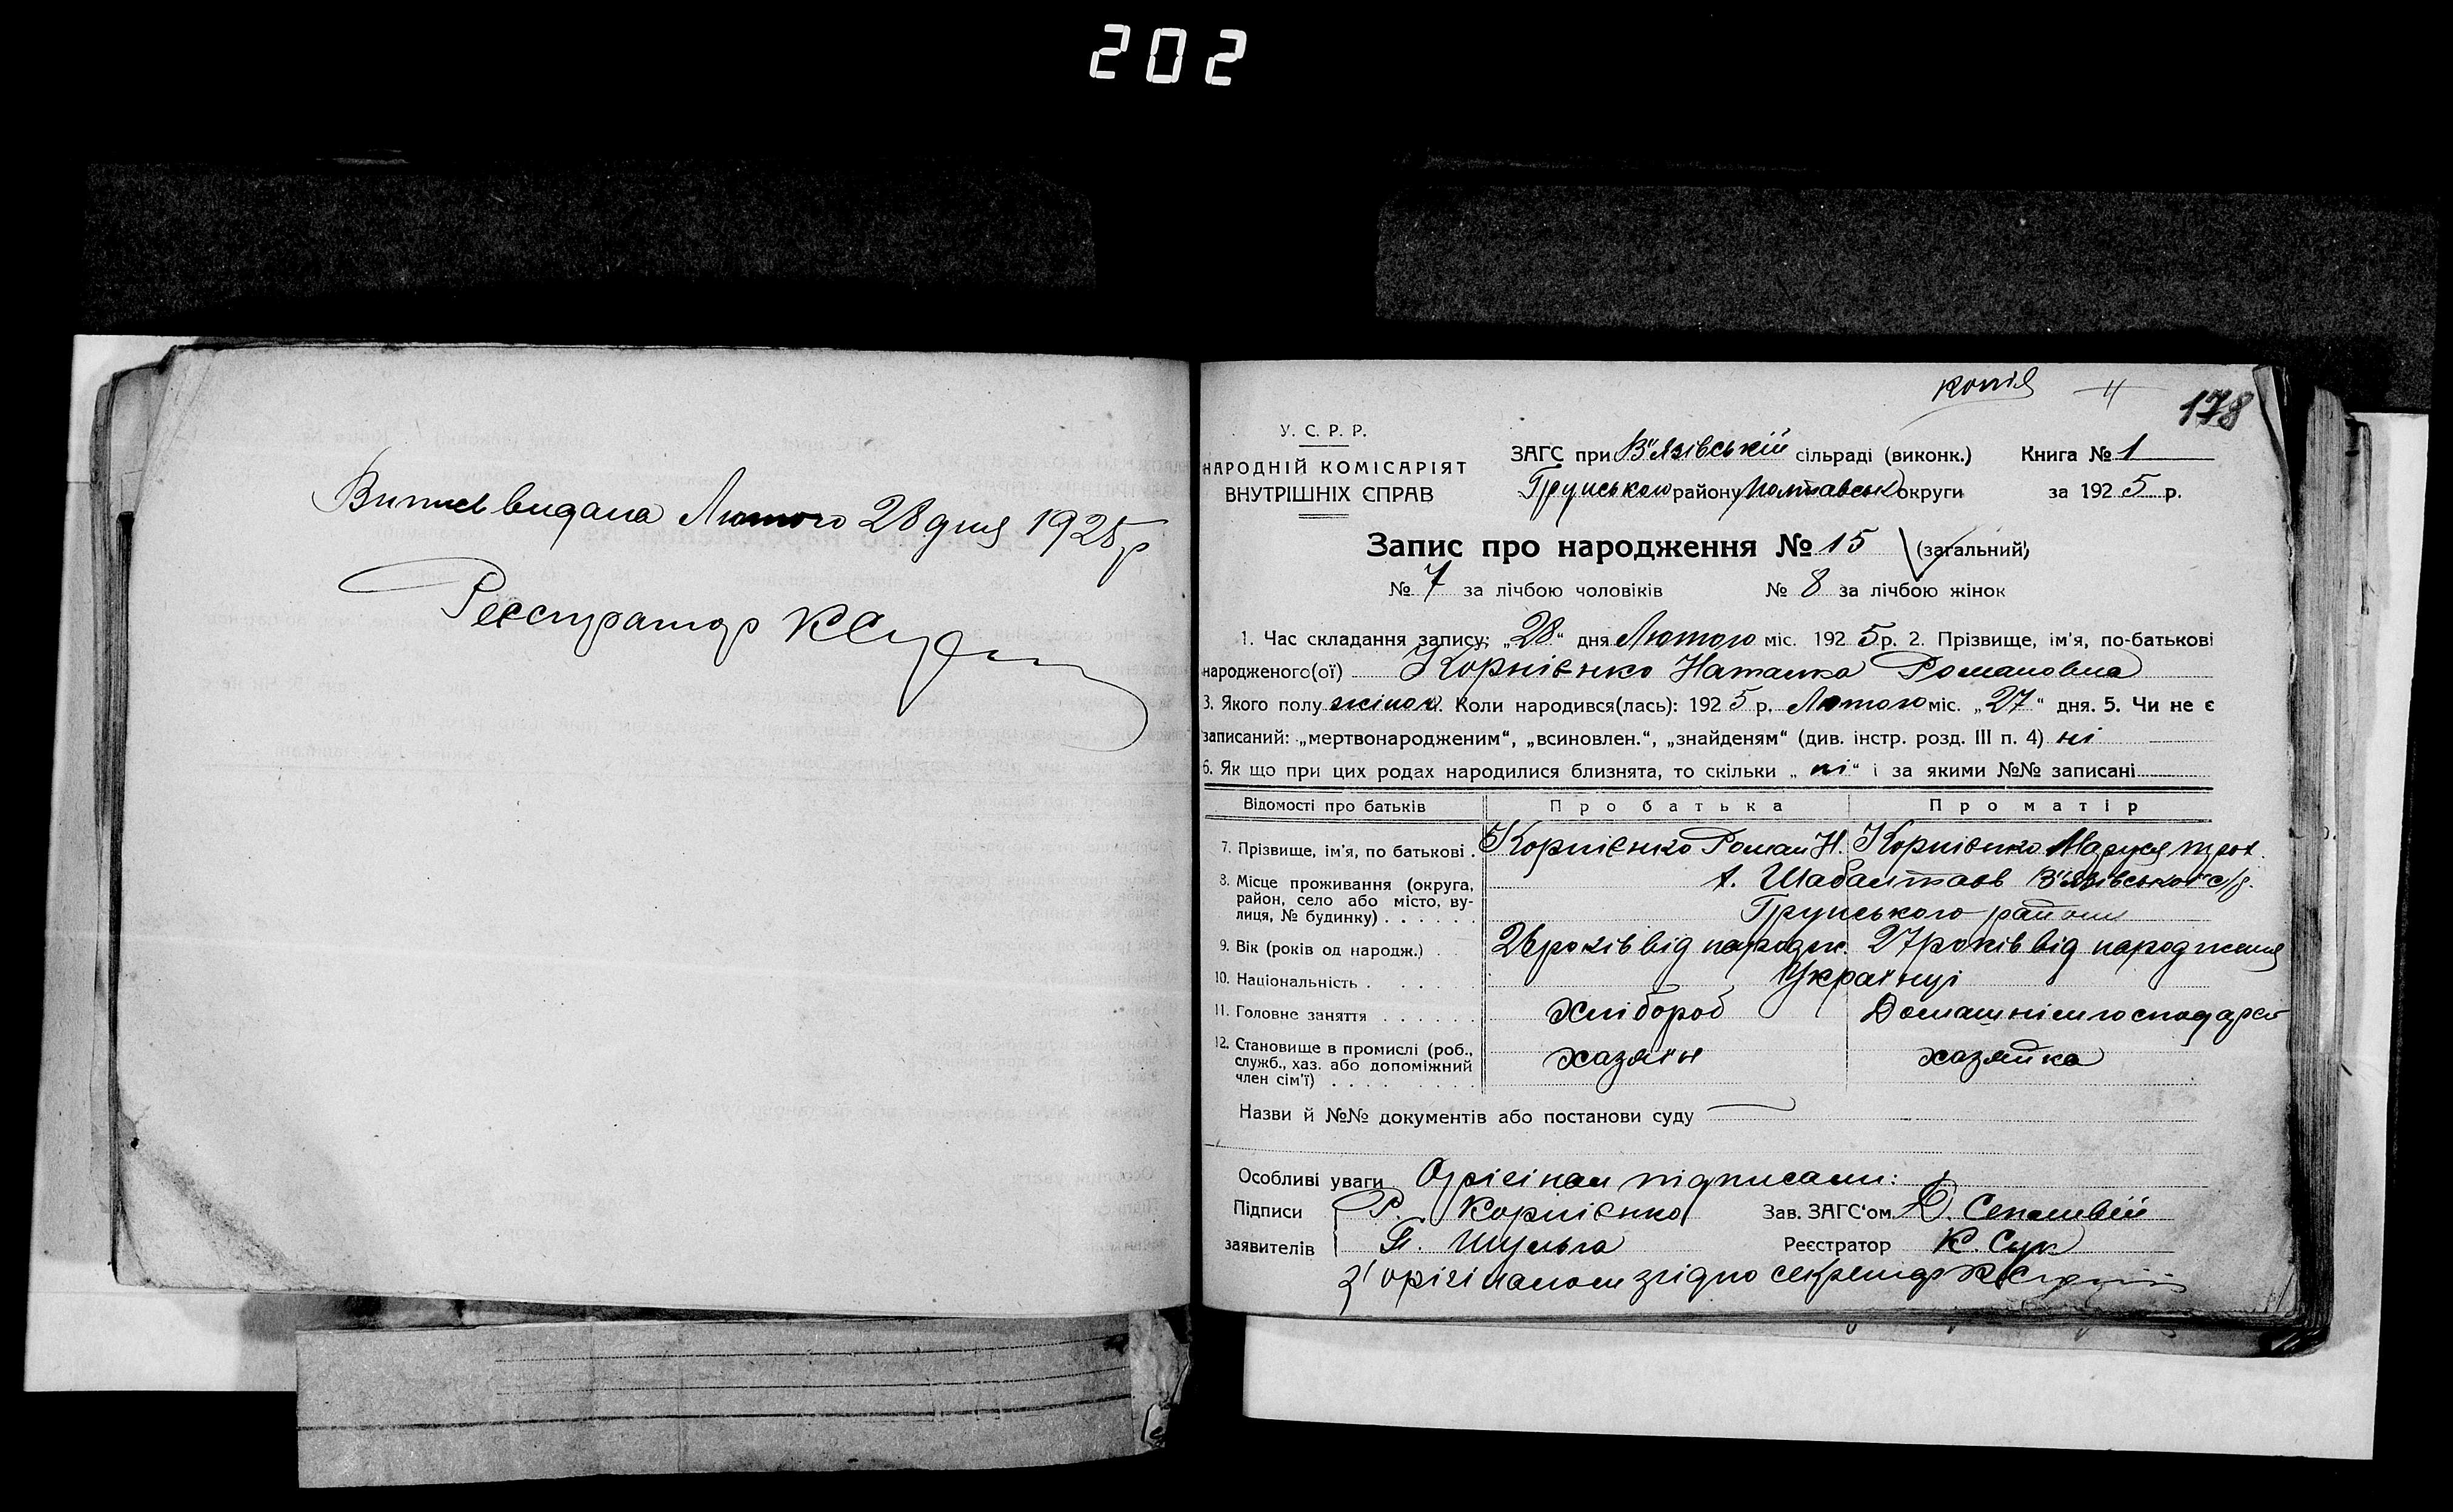 202
Випись видана Лютого 28 дня 1925 р
Реєстратор К Сук
копія
178
У. С. Р. Р.
НАРОДНІЙ КОМІСАРІЯТ
ВНУТРІШНІХ СПРАВ
ЗАГС при В'язівській сільраді (виконк.) Книга № 1
Грунського району Полтавськ округи за 1925 р.
Запис про народження № 15 (загальний)
№ 7 за лічбою чоловіків № 8 за лічбою жінок
1. Час складання запису: „28“ дня Лютого міс. 1925 р. 2. Прізвище, ім'я, по-батькові
народженого(ої) Корнієнко Наталка Романовна
3. Якого полу жіноч. Коли народився(лась): 1925 р. Лютого міс. „27“ дня. 5. Чи не є
записаний: „мертвонародженим“, „всиновлен.“, „знайденям“ (див. інстр. розд. III п. 4) ні
6. Як що при цих родах народилися близнята, то скільки „ні“ і за якими №№ записані
Відомості про батьків Про батька Про матір
7. Прізвище, ім'я, по батькові . Корнієнко Роман Н. Корнієнко Маруся
8. Місце проживання (округа, район, село або місто, вулиця, № будинку) . . . . . . х. Шабалтаєв В'язівської с/р.
Грунського району
9. Вік (років од народж.) . . 26 років від народж. 27 років від народження
10. Національність . . . . . Українці
11. Головне заняття . . . . . . хлібороб Домашнім господарст
12. Становище в промислі (роб., служб., хаз. або допоміжний член сім'ї) . . . . хазяїн хазяйка
Назви й №№ документів або постанови суду
Особливі уваги Орігінал підписали:
Підписи Р. Корнієнко Зав. ЗАГС'ом
заявителів П. Шульга Реєстратор К. Сук
З' орігіналом згідно секретар К Сук